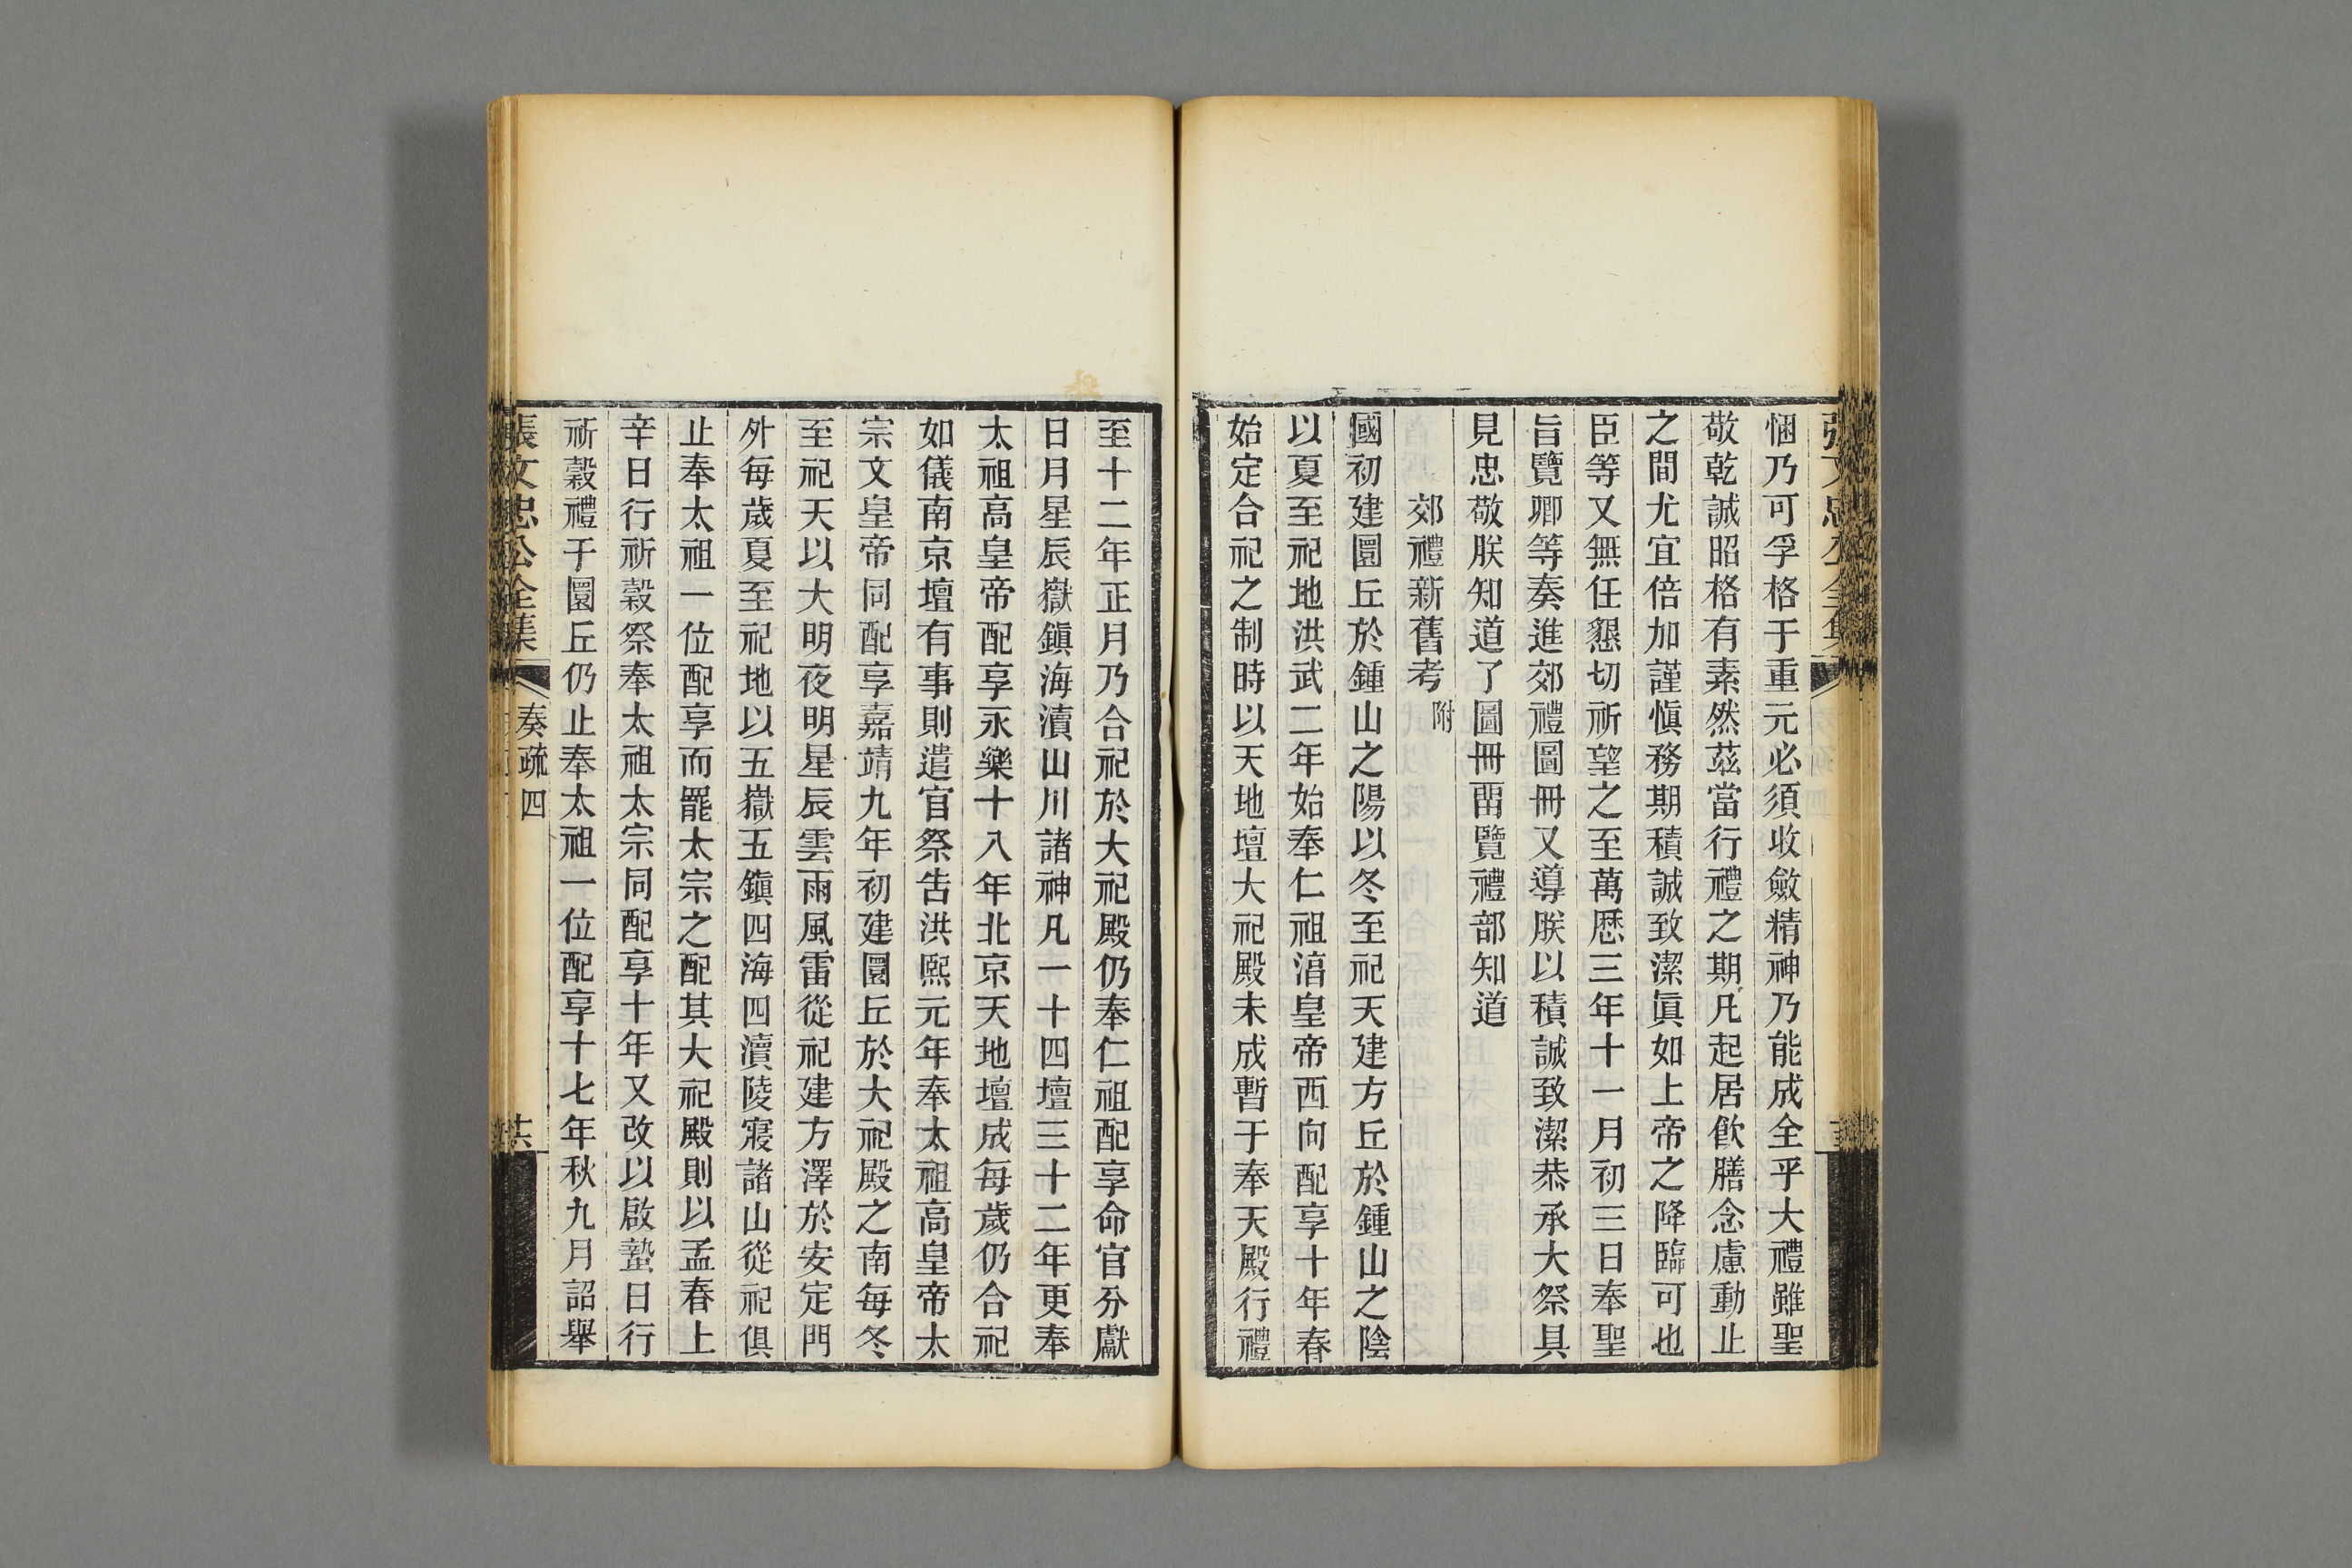 悃乃可孚格于重元必須收斂精神乃能成全乎大禮雖聖
敬乾誠昭格有素然茲當行禮之期凡起居飮膳念慮動止
之間尤宜倍加謹愼務期積誠致潔眞如上帝之降臨可也
臣等又無任懇切祈望之至萬厯三年十一月初三日奉聖
旨覽卿等奏進郊禮圖冊又導朕以積誠致潔恭承大祭具
見忠敬朕知道了圖冊畱覽禮部知道
郊禮新舊考附
國初建圜丘於鍾山之陽以冬至祀天建方丘於鍾山之陰
以夏至祀地洪武二年始奉仁祖淳皇帝西向配享十年春
始定合祀之制時以天地壇大祀殿未成暫于奉天殿行禮
至十二年正月乃合祀於大祀殿仍奉仁祖配享命官分獻
日月星辰嶽鎭海瀆山川諸神凡一十四壇三十二年更奉
太祖高皇帝配享永樂十八年北京天地壇成每歲仍合祀
如儀南京壇有事則遣官祭告洪熙元年奉太祖高皇帝太
宗文皇帝同配享嘉靖九年初建圜丘於大祀殿之南每冬
至祀天以大明夜明星辰雲雨風雷從祀建方澤於安定門
外每歲夏至祀地以五嶽五鎭四海四瀆陵寢諸山從祀俱
止奉太祖一位配享而罷太宗之配其大祀殿則以孟春上
辛日行祈穀祭奉太祖太宗同配享十年又改以啟蟄日行
祈穀禮于圜丘仍止奉太祖一位配享十七年秋九月詔舉
張文忠公全集
奏疏四